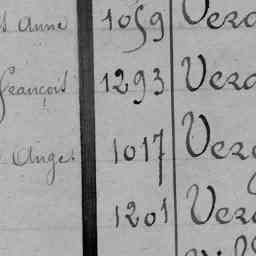 Anne 1059 Vera
françois 1293 Vera
Ange 1017 Vera
1201 Vera